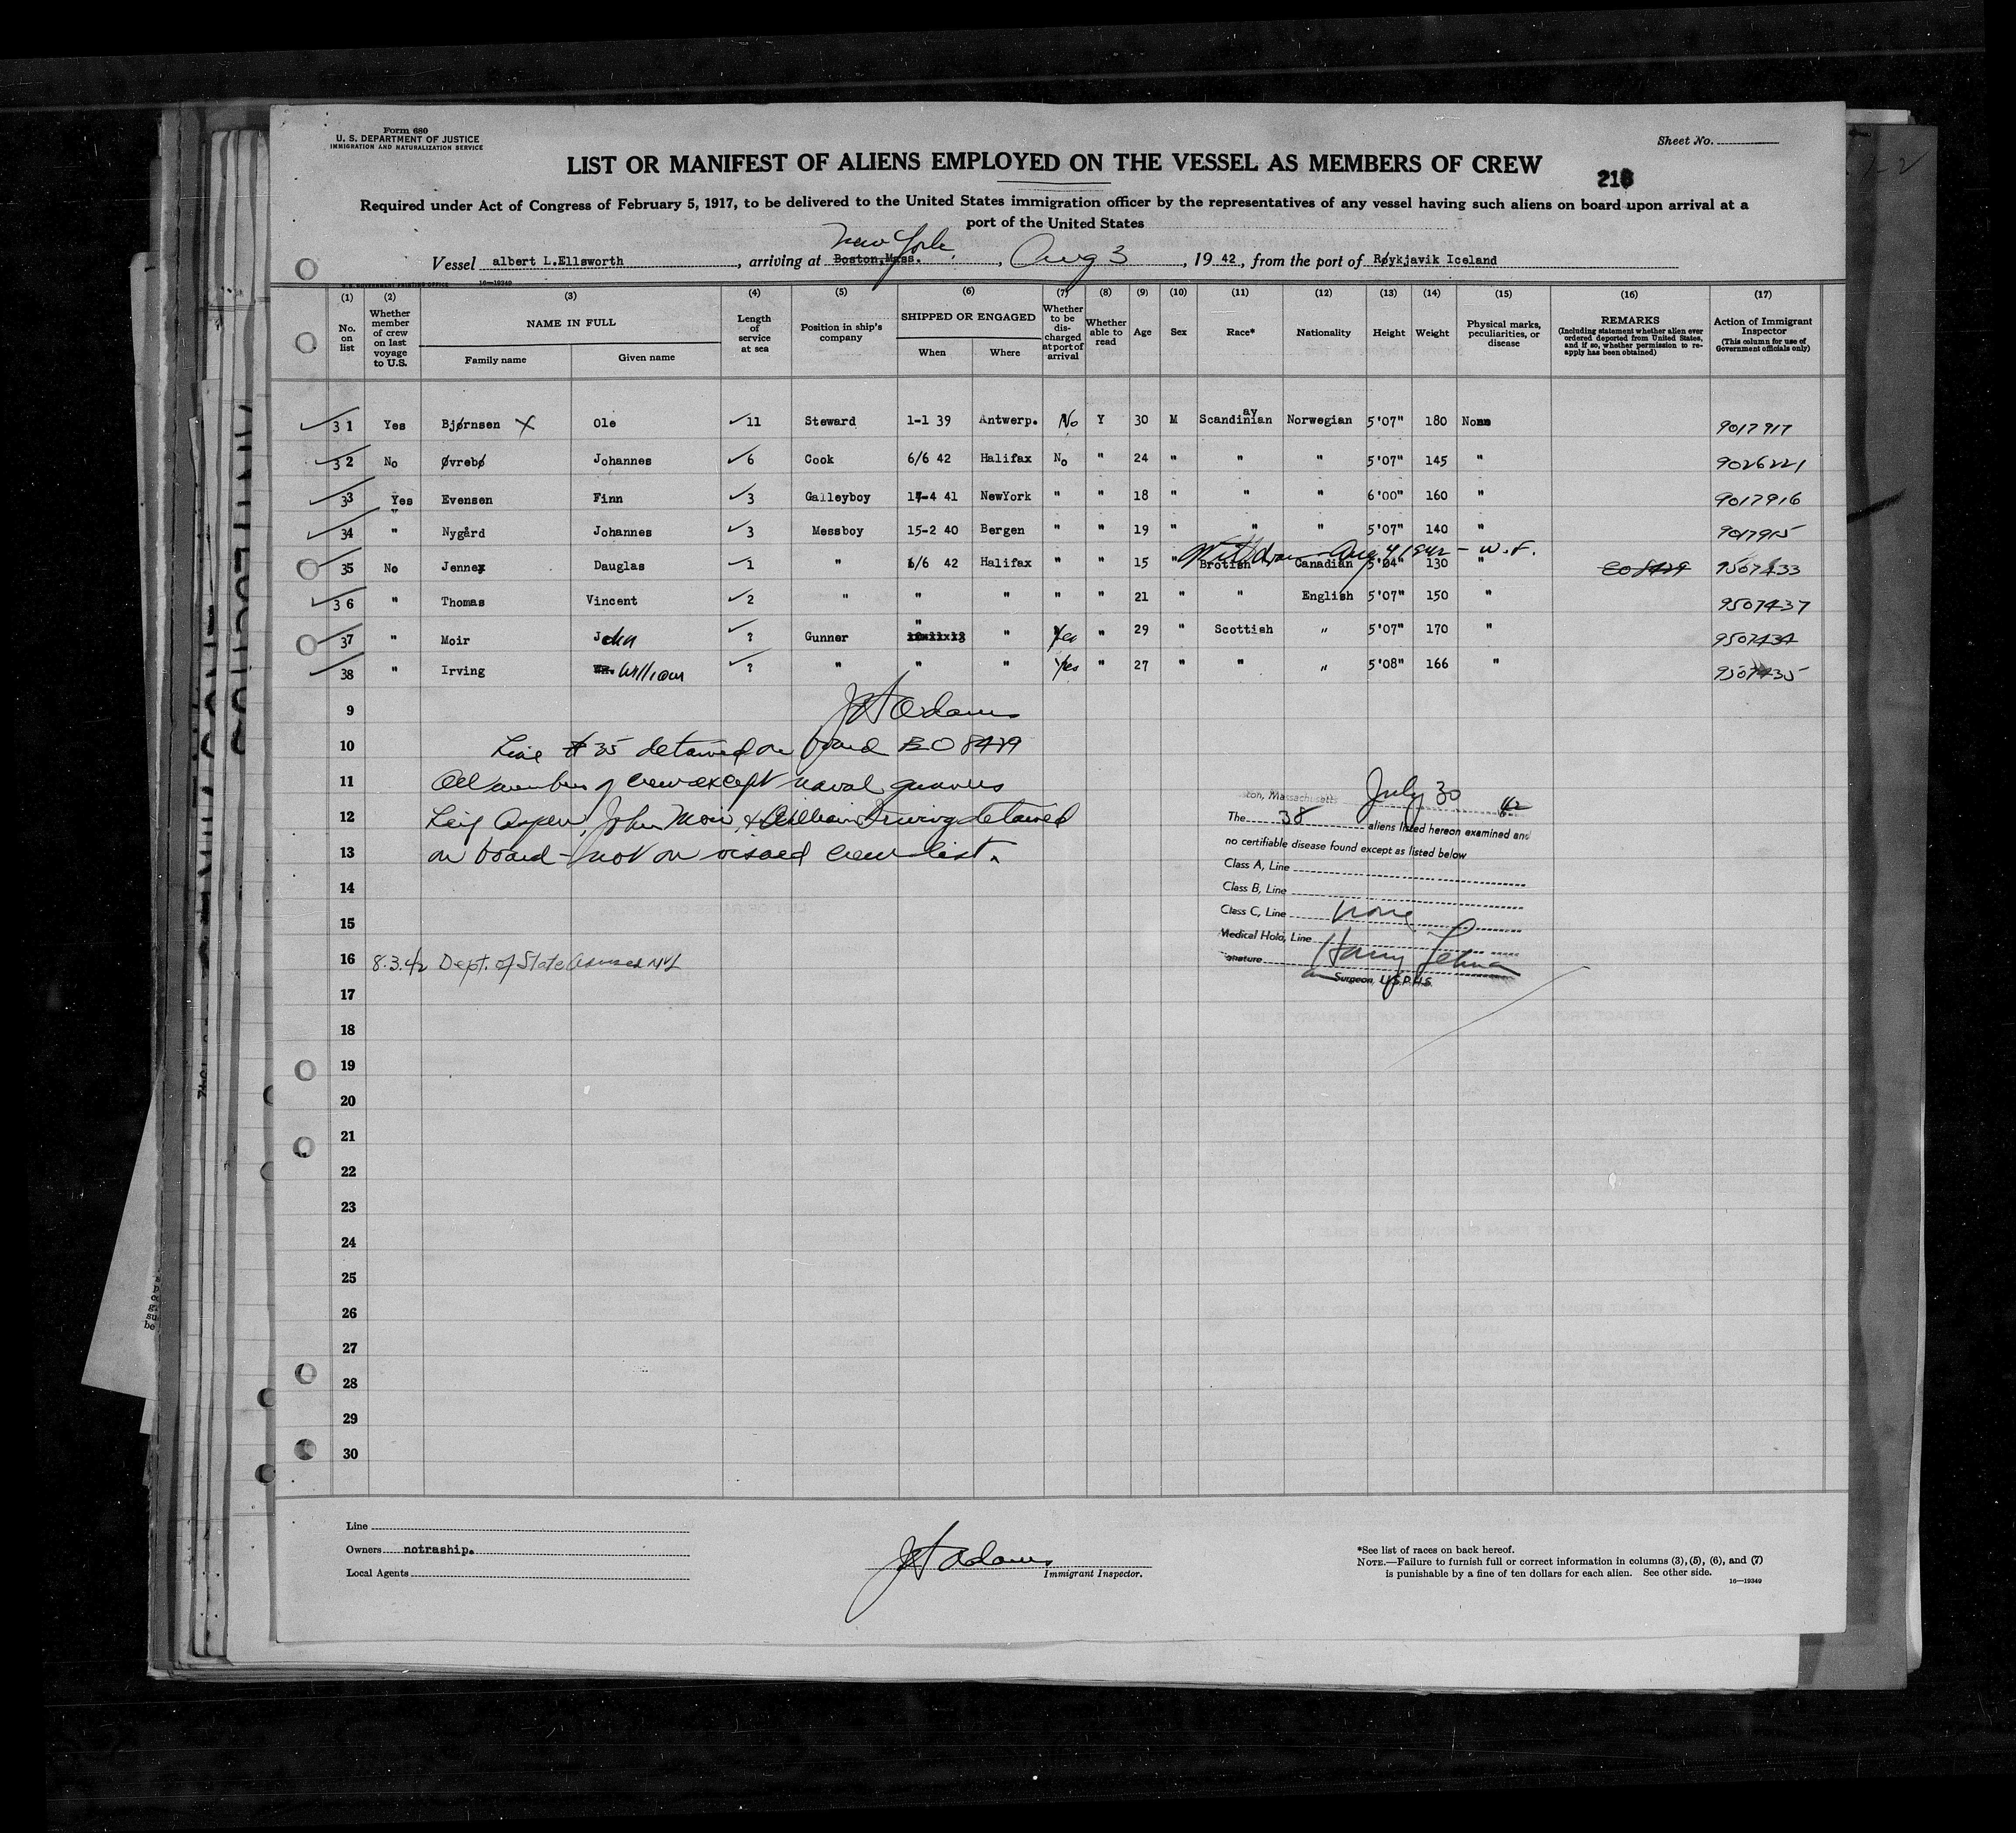 Form 680
U. S. DEPARTMENT OF JUSTICE
IMMIGRATION AND NATURALIZATION SERVICE
Sheet No.
LIST OR MANIFEST OF ALIENS EMPLOYED ON THE VESSEL AS MEMBERS OF CREW
Required under Act of Congress of February 5, 1917, to be delivered to the United States immigration officer by the representatives of any vessel having such aliens on board upon arrival at a
port of the United States
New York
Vessel albert L.Ellsworth, arriving at Boston,Mass., Aug 3, 19 42, from the port of Røykjavik Iceland
U. S. GOVERNMENT PRINTING OFFICE 16—19349
(1) (2) (3) (4) (5) (6) (7) (8) (9) (10) (11) (12) (13) (14) (15) (16) (17)
No. on list
Whether member of crew on last voyage to U.S.
NAME IN FULL
Family name
Given name
Length of service at sea
Position in ship's company
SHIPPED OR ENGAGED
When
Where
Whether to be discharged at port of arrival
Whether able to read
Age
Sex
Race*
Nationality
Height
Weight
Physical marks, peculiarities, or disease
REMARKS
(Including statement whether alien ever ordered deported from United States, and if so, whether permission to re-apply has been obtained)
Action of Immigrant Inspector
(This column for use of Government officials only)
31 Yes Bjørnsen X Ole 11 Steward 1-1 39 Antwerp. No Y 30 M Scandinavian Norwegian 5'07" 180 None 9017917
32 No Øvrebø Johannes 6 Cook 6/6 42 Halifax No " 24 " " " 5'07" 145 " 9026221
33 Yes Evensen Finn 3 Galleyboy 17-4 41 NewYork " " 18 " " " 6'00" 160 " 9017916
34 " Nygård Johannes 3 Messboy 15-2 40 Bergen " " 19 " " " 5'07" 140 " 9017915
Withdrawn Aug 4 1942 - W.F.
35 No Jennex Dauglas 1 " 6/6 42 Halifax " " 15 " Brotish Canadian 5'04" 130 " 9507433
36 " Thomas Vincent 2 " " " " " 21 " " English 5'07" 150 " 9507437
37 " Moir John ? Gunner " " Yes " 29 " Scottish " 5'07" 170 " 9507434
38 " Irving Wm. William ? " " " Yes " 27 " " " 5'08" 166 " 9507435
9 J H Adams
10 Line # 35 detained on board BO 8479
11 All members of crew except naval gunners
12 John Moir & William Irving detained
13 on board - not on visaed crew list.
14
15
16 8.3.42 Dept. of State
17
18
19
20
21
22
23
24
25
26
27
28
29
30
ton, Massachusetts July 30 42
The 38 aliens listed hereon examined and
no certifiable disease found except as listed below
Class A, Line
Class B, Line
Class C, Line none
Medical Hold, Line
Surgeon, U.S.P.H.S.
Line
Owners notraship.
Local Agents
J H Adams
Immigrant Inspector.
*See list of races on back hereof.
NOTE.—Failure to furnish full or correct information in columns (3), (5), (6), and (7)
is punishable by a fine of ten dollars for each alien. See other side.
16—19349